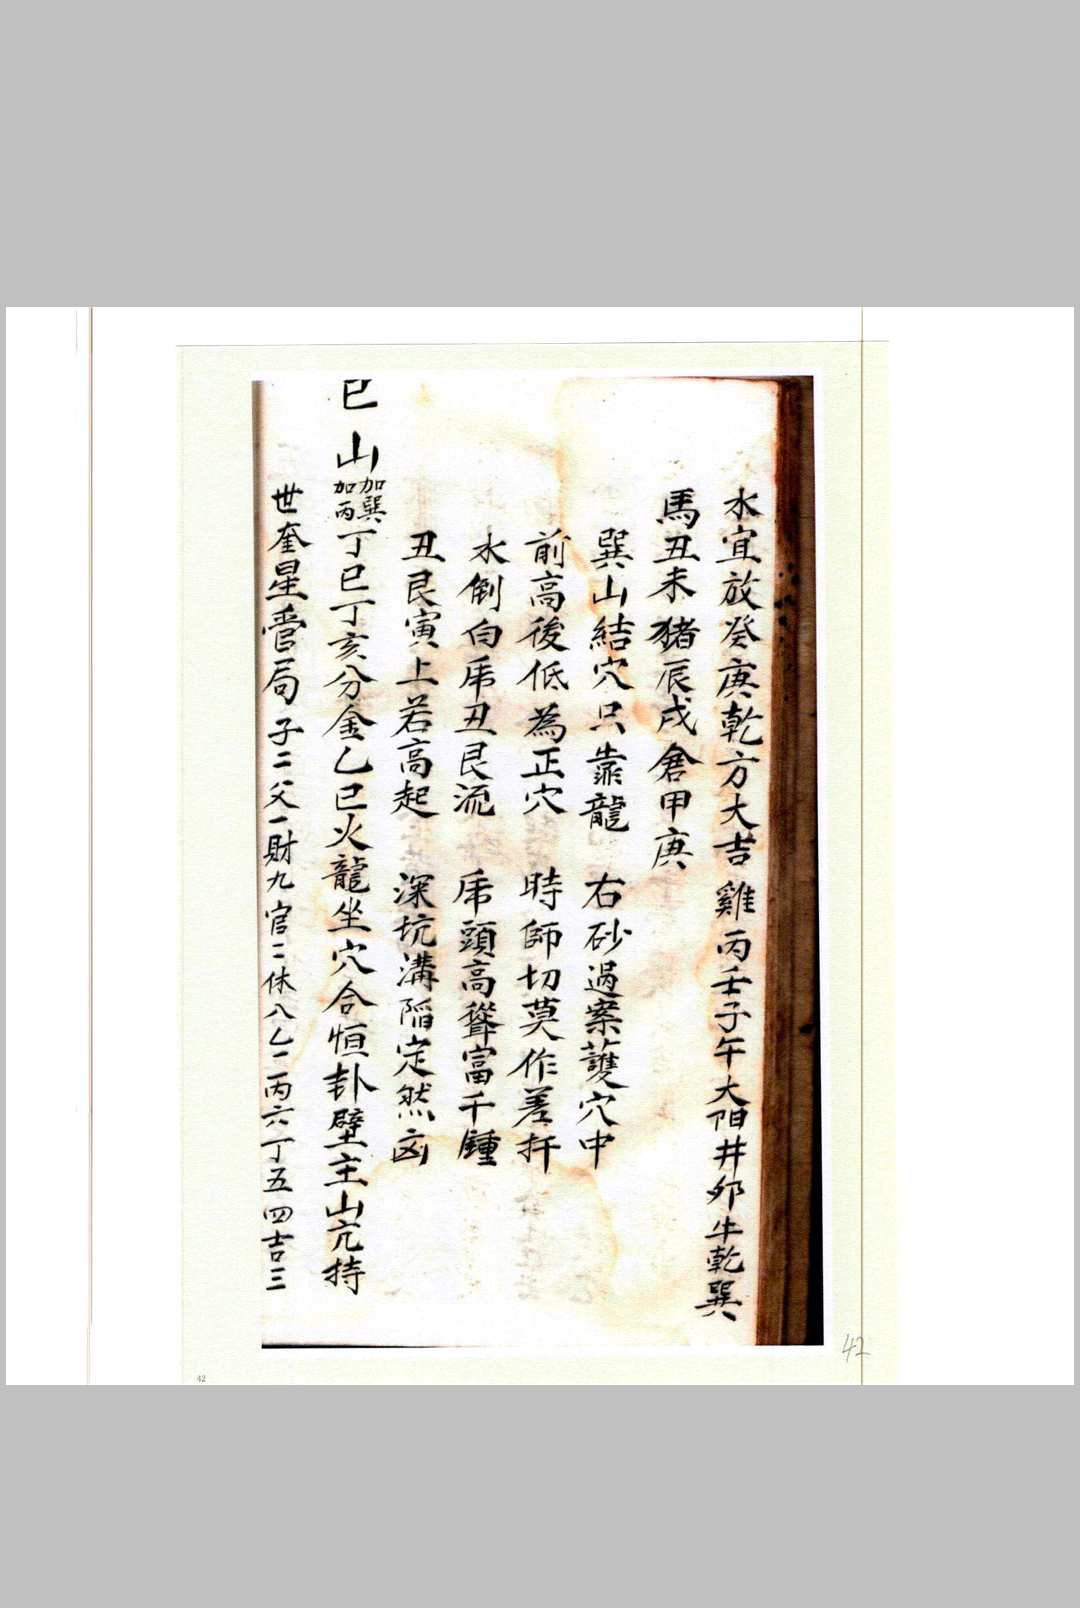 水宜放癸庚乾方大吉 雞丙壬子午大阳井夘牛乾巽
馬丑未猪辰戌倉甲庚
巽山結穴只靠龍 右砂過案護穴中
前高後低為正穴 時師切莫作差扦
水倒向乕丑艮流 乕頭高聳富千鍾
丑艮寅上若高起 深坑溝陷定然凶
巳山加巽加丙丁巳丁亥分金乙巳火龍坐穴合恒卦壁主山亢持
世奎星管局子二父一財九官二休八乙一丙六丁五四吉三
42
42